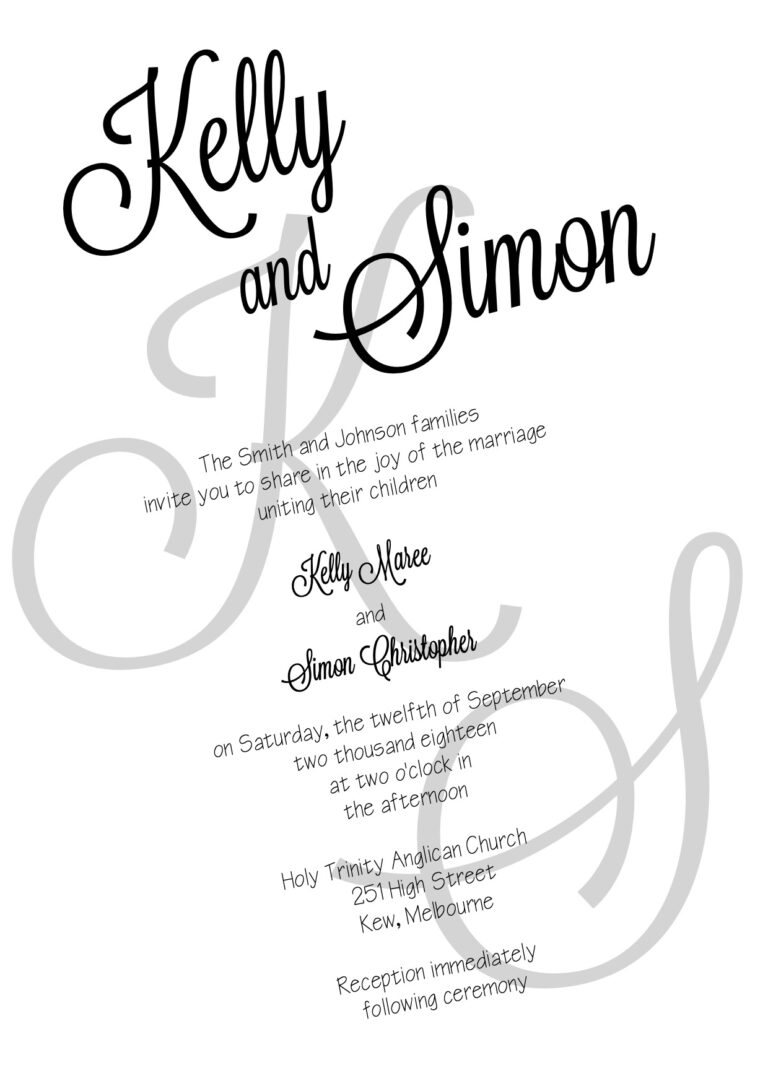 Kelly
and Simon
K
S
The Smith and Johnson families
invite you to share in the joy of the marriage
uniting their children
Kelly Maree
and
Simon Christopher
on Saturday, the twelfth of September
two thousand eighteen
at two o'clock in
the afternoon
Holy Trinity Anglican Church
251 High Street
Kew, Melbourne
Reception immediately
following ceremony